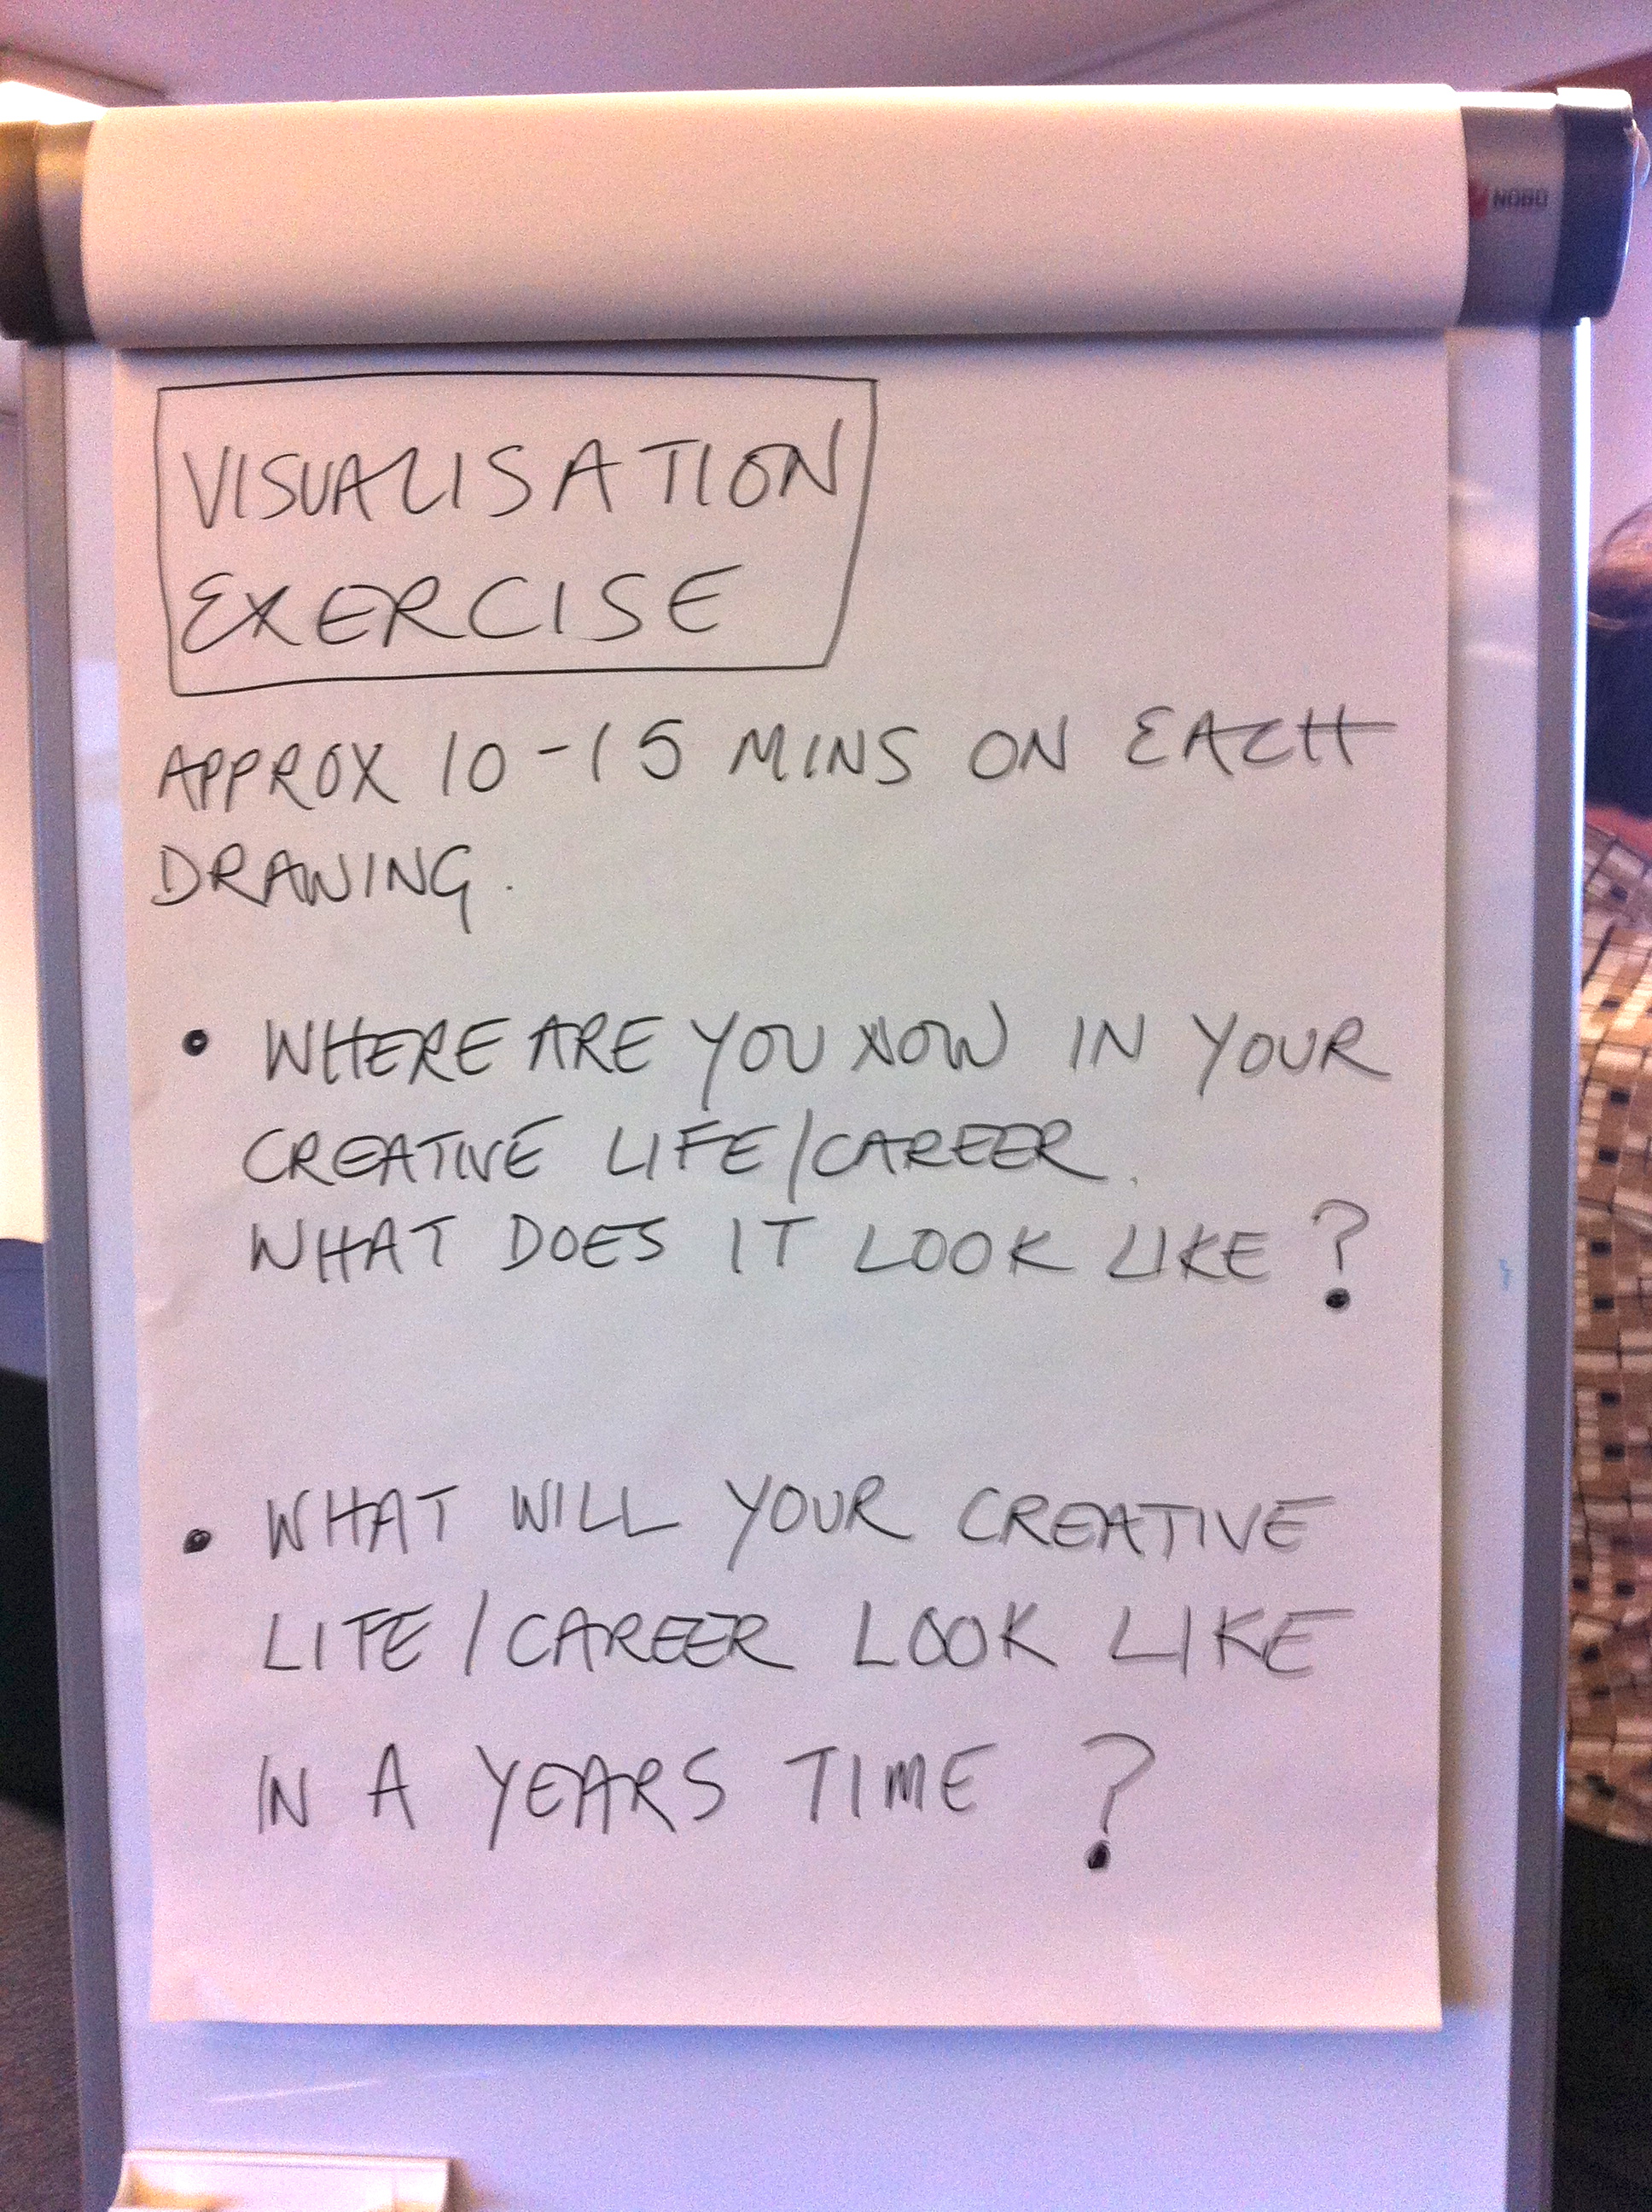 NOBO
VISUALISATION
EXERCISE
APPROX 10-15 MINS ON EACH
DRAWING.
• WHERE ARE YOU NOW IN YOUR
CREATIVE LIFE/CAREER.
WHAT DOES IT LOOK LIKE?
• WHAT WILL YOUR CREATIVE
LIFE/CAREER LOOK LIKE
IN A YEARS TIME?